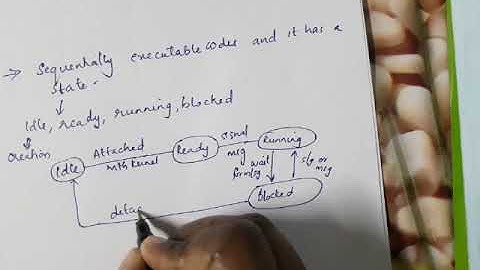 → Sequentially executable codes and it has a
state.
Idle, ready, running, blocked
Creation
Idle
Attached
with kernel
Ready
signal
msg
Running
wait
for msg
sig or
msg
blocked
detac